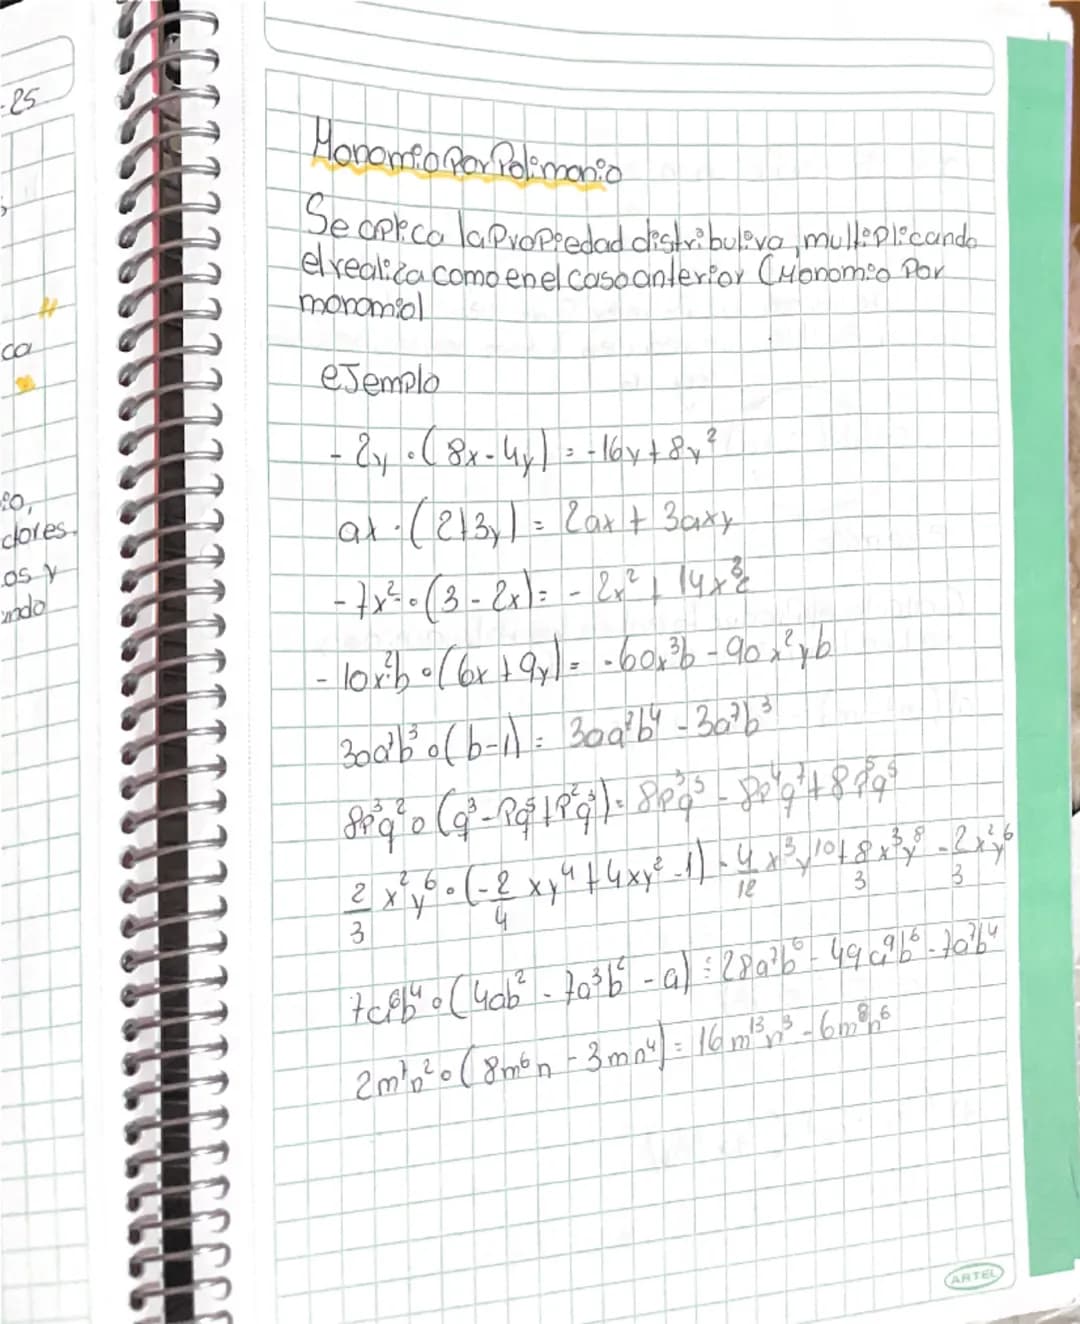 -25
ca
dores.
os y
ando
Monomio Por Polimonio
Se aplica la Propiedad distributiva, multiplicando
el realiza como en el caso anterior (Monomio Por
monomio)
eJemplo
- 2y · ( 8x - 4y ) = -16y + 8y²
ax · ( 2+3y ) = 2ax + 3axy
- 7x² · (3 - 2x) = - 2x² + 14x³
- 10x²b · (6x + 9y) = -60x³b - 90x²yb
30a⁷b³ · (b-1) = 30a⁷b⁴ - 3a⁷b³
8p³q² · (q³ - Pq⁵ + P²q³) = 8p³q⁵ - 8p⁴q⁷ + 8p⁵q⁵
2/3 x²y⁶ · (-2/4 xy⁴ + 4xy² - 1) - 4/12 x³y¹⁰ + 8/3 x³y⁸ - 2/3 x²y⁶
7a⁶b⁴ · (4ab² - 7a³b² - a) = 28a⁷b⁶ - 49a⁹b⁶ - 7a⁷b⁴
2m⁷n² · ( 8m⁶n - 3mn⁴) = 16m¹³n³ - 6m⁸n⁶
ARTEL